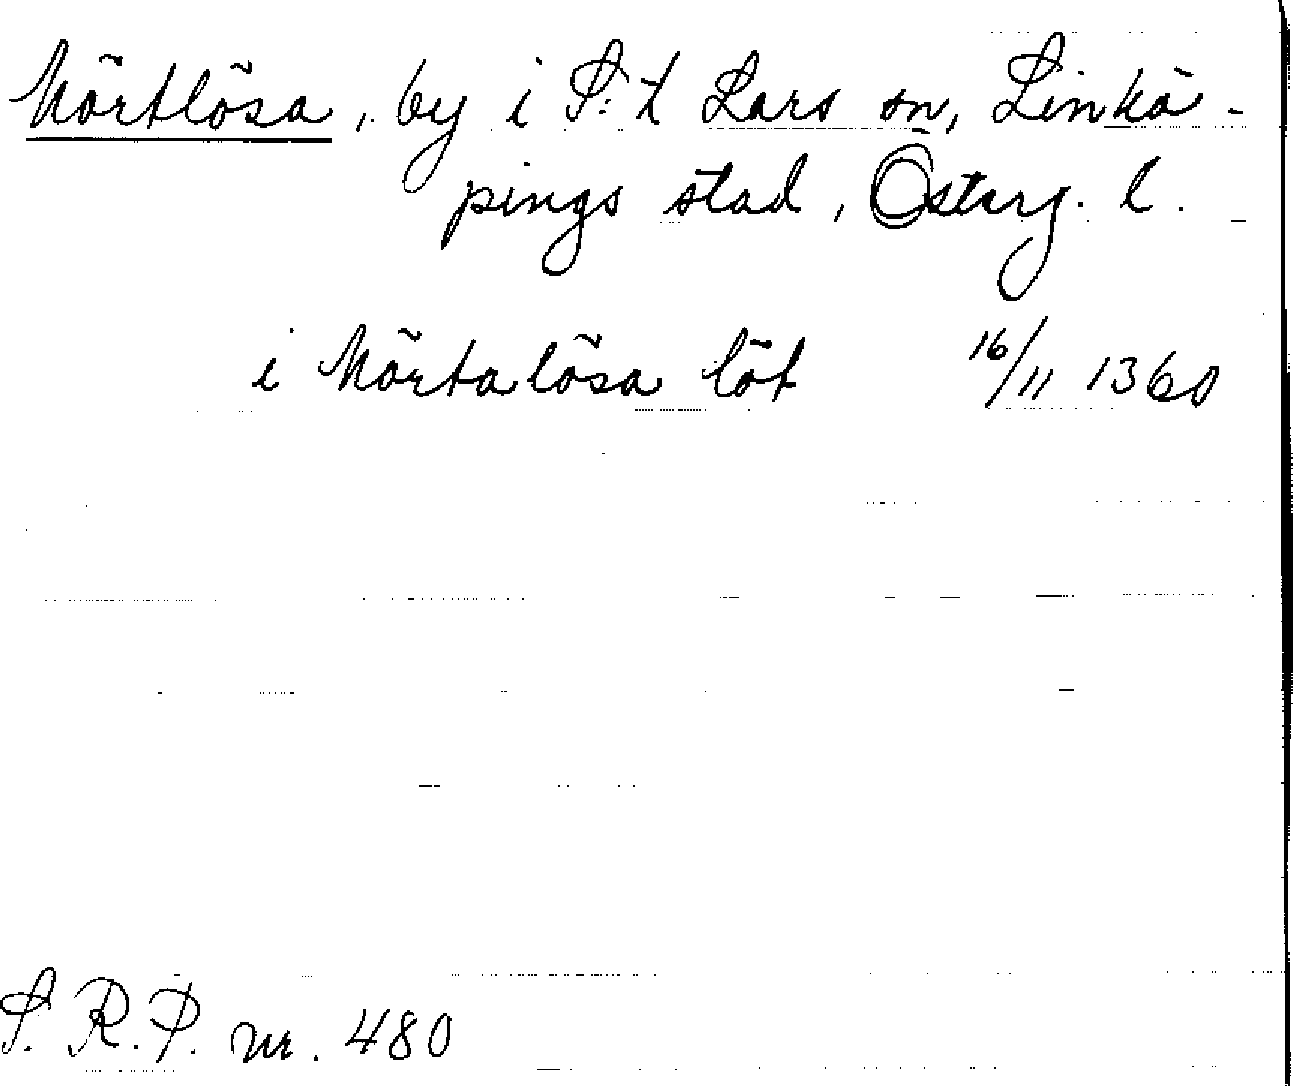 Mörtlösa, by i S:t Lars sn, Linkö-
pings stad, Österg. l.
i Mörtalösa löt 16/11 1360
S.R.P. nr. 480